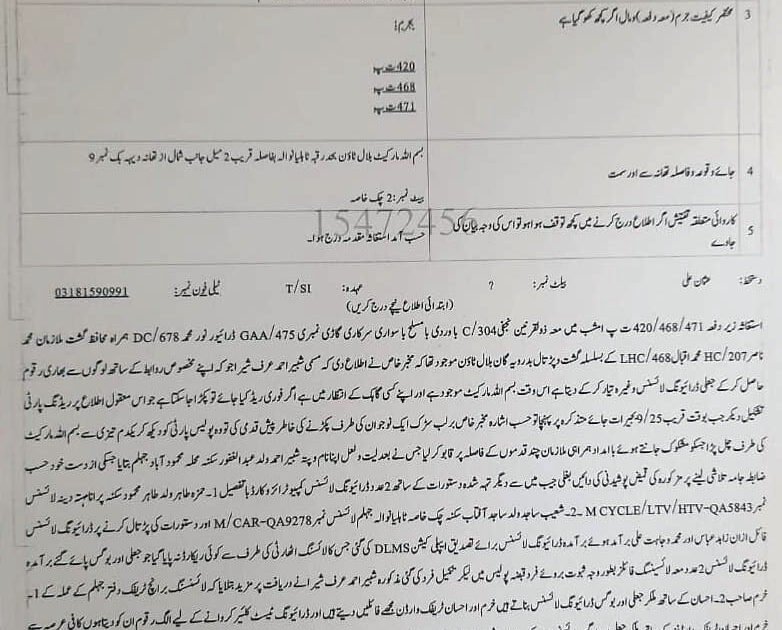 3 مختصر کیفیت جرم (معہ دفعہ) و مال اگر کچھ کھو گیا ہے
بجرم:
420 ت پ
468 ت پ
471 ت پ
4 جائے وقوعہ و فاصلہ تھانہ سے اور سمت
بسم اللہ مارکیٹ بلال ٹاؤن بحد رقبہ ٹاہلیانوالہ بفاصلہ قریب 2 میل جانب شمال از تھانہ دیہہ بک نمبر 9
بیٹ نمبر: 2 چک خاصہ
5 کاروائی متعلقہ تفتیش اگر اطلاع درج کرنے میں کچھ توقف ہوا ہو تو اس کی وجہ بیان کی جاوے
حسب آمد استغاثہ مقدمہ درج ہوا۔
15472456
دستخط: عثمان علی بیلٹ نمبر: ? عہدہ: T/SI ٹیلی فون نمبر: 03181590991
(ابتدائی اطلاع نیچے درج کریں)
استغاثہ زیر دفعہ 420/468/471 ت پ امشب میں معہ ذولقرنین نجفی 304/C باوردی بامسلح باسواری سرکاری گاڑی نمبری GAA/475 ڈرائیور نور محمد DC/678 ہمراہ محافظ گشت ملازمان محمد
ناصر HC/207 محمد اقبال LHC/468 کے بسلسلہ گشت و پڑتال بدرویہ گان بلال ٹاؤن موجود تھا کہ مخبر خاص نے اطلاع دی کہ مسمی شبیر احمد عرف شیرا جو کہ اپنے مخصوص روابط کے ساتھ لوگوں سے بھاری رقوم
حاصل کر کے جعلی ڈرائیونگ لائسنس وغیرہ تیار کر کے دیتا ہے اس وقت بسم اللہ مارکیٹ موجود ہے اور اپنے کسی گاہک کے انتظار میں ہے اگر فوری ریڈ کیا جائے تو پکڑا جا سکتا ہے جو اس معقول اطلاع پر ریڈنگ پارٹی
تشکیل دیکر جب بوقت قریب 9/25 بجے رات جائے متذکرہ پر پہنچا تو حسب اشارہ مخبر خاص برلب سڑک ایک نوجوان کی طرف پکڑنے کی خاطر پیش قدمی کی تو وہ پولیس پارٹی کو دیکھ کر یکدم تیزی سے بسم اللہ مارکیٹ
کی طرف چل پڑا جسکو مشکوک جانتے ہوئے باامداد ہمراہی ملازمان چند قدموں کے فاصلہ پر قابو کر لیا جس نے بعد لیت و لعل اپنا نام و پتہ شبیر احمد ولد عبدالغفور سکنہ محلہ محمود آباد جہلم بتایا جسکی از دست خود حسب
ضابطہ جامہ تلاشی لینے پر مذکورہ کی قمیض پوشیدنی کی دائیں بغلی جیب میں سے دیگر تہہ شدہ دستورات کے ساتھ 2 عدد ڈرائیونگ لائسنس کمپیوٹرائزڈ کارڈ باتفصیل 1۔ حمزہ طاہر ولد طاہر محمود سکنہ دینہ لائسنس
نمبر M CYCLE/LTV/HTV-QA5843 ۔2۔ شعیب ساجد ولد ساجد آفتاب سکنہ چک خاصہ ٹاہلیانوالہ جہلم لائسنس نمبر M/CAR-QA9278 اور دستورات کی پڑتال کرنے پر ڈرائیونگ لائسنس
فائل ازان زاہد عباس اور محمد وجاہت علی برآمد ہوئے برآمدہ ڈرائیونگ لائسنس برائے تصدیق اپیلی کیشن DLMS کی گئی جس کا لائسنسنگ اتھارٹی کی طرف سے کوئی ریکارڈ نہ پایا گیا جو جعلی اور بوگس پائے گئے برآمدہ
ڈرائیونگ لائسنس 2 عدد معہ لائسنسنگ فائلز بطور وجہ ثبوت بروئے فرد قبضہ پولیس میں لیکر تکمیل فرد کی گئی مذکورہ شبیر احمد عرف شیرا نے دریافت پر مزید بتلایا کہ لائسنسنگ برانچ ٹریفک دفتر جہلم کے عملہ کے 1۔
خرم صاحب 2۔ احسان کے ساتھ ملکر جعلی اور بوگس ڈرائیونگ لائسنس بناتے ہیں خرم اور احسان ٹریفک وارڈن مجھے فائلیں دیتے ہیں اور ڈرائیونگ ٹیسٹ کلیئر کروانے کے لیے الگ رقوم ان کو دیتا ہوں کافی عرصہ سے